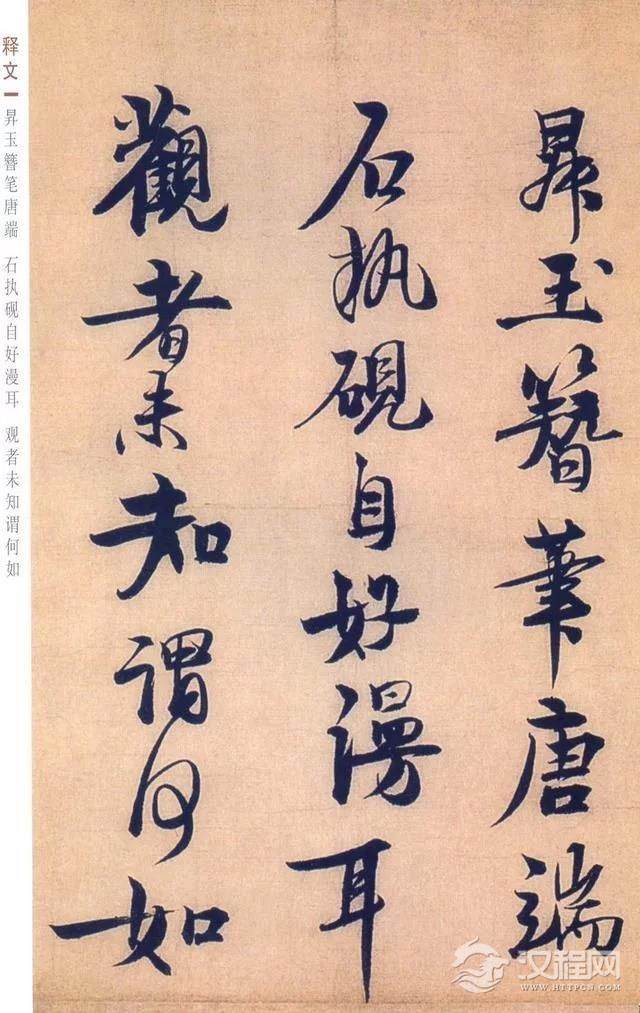 昇玉簪筆唐端
石执硯自好漫耳
觀者未知謂何如
释文
昇玉簪笔唐端 石执砚自好漫耳 观者未知谓何如
汉程网
WWW.HTTPCN.COM